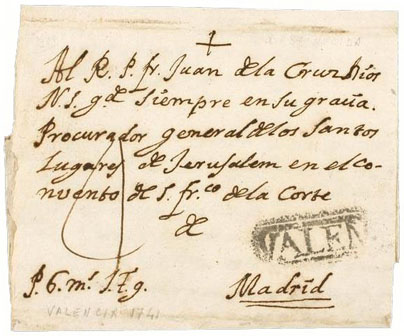 Al R. P. fr. Juan de la Cruz Dios
N. S. g.de siempre en su gracia.
Procurador general de los Santos
Lugares de Jerusalem en el Co-
nvento de S. fr.co de la Corte
de
VALEN
Madrid
VALENCIA 1741